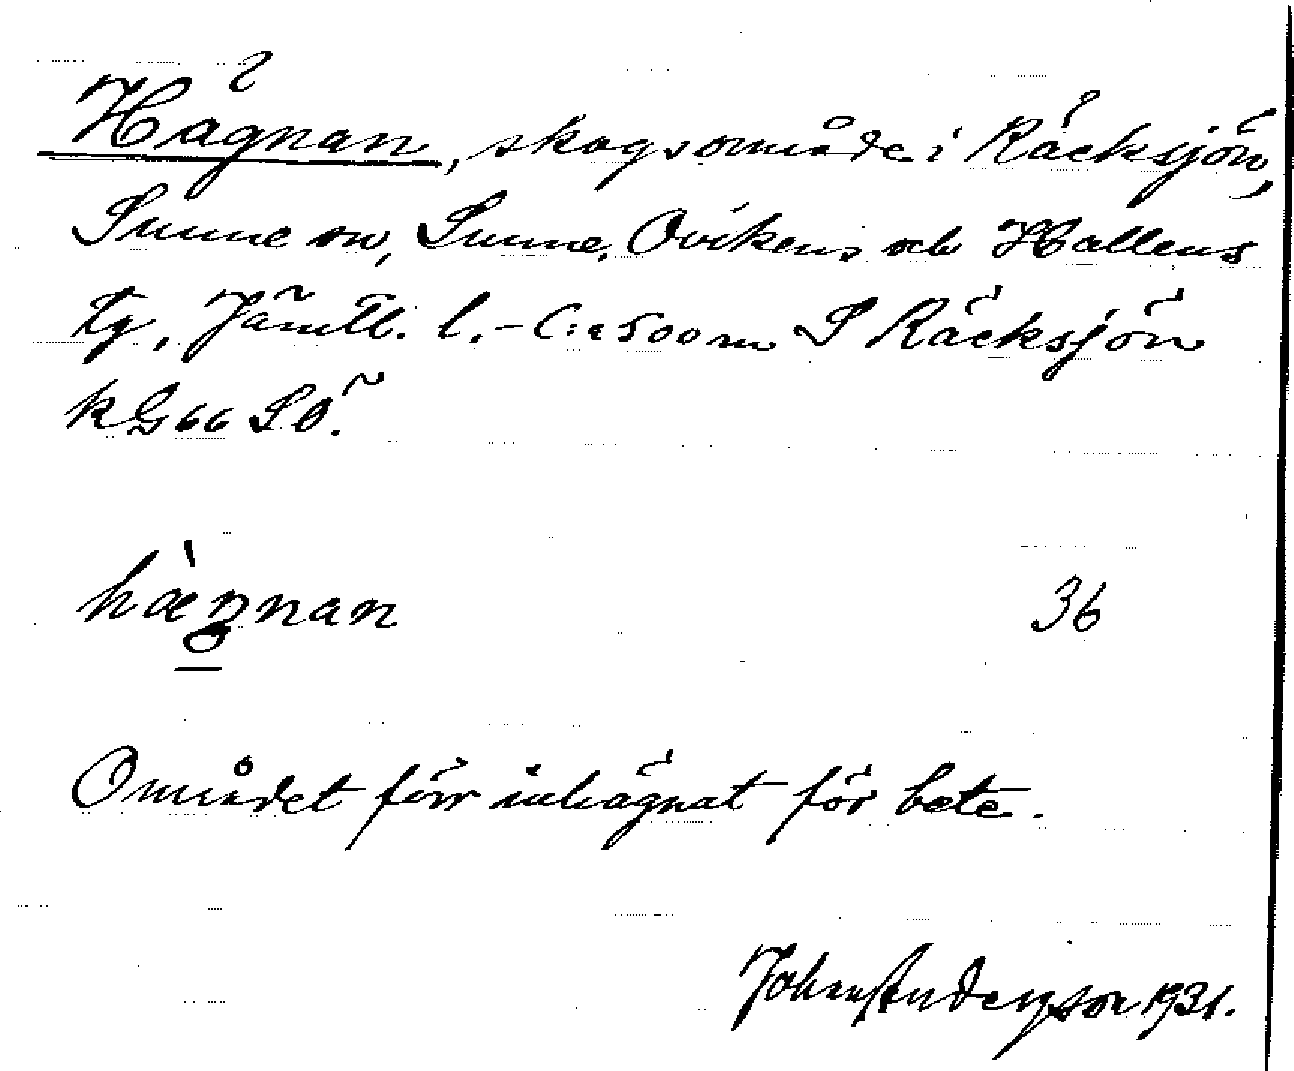 Hägnan, skogsområde i Räcksjön,
Sunne sn, Sunne, Ovikens och Hallens
tg, Jämtl. l. – C:a 500 m S Räcksjön
k G 66 SÖ.
hægnan 36
Området förr inhägnat för bete.
Johan Anderson 1931.